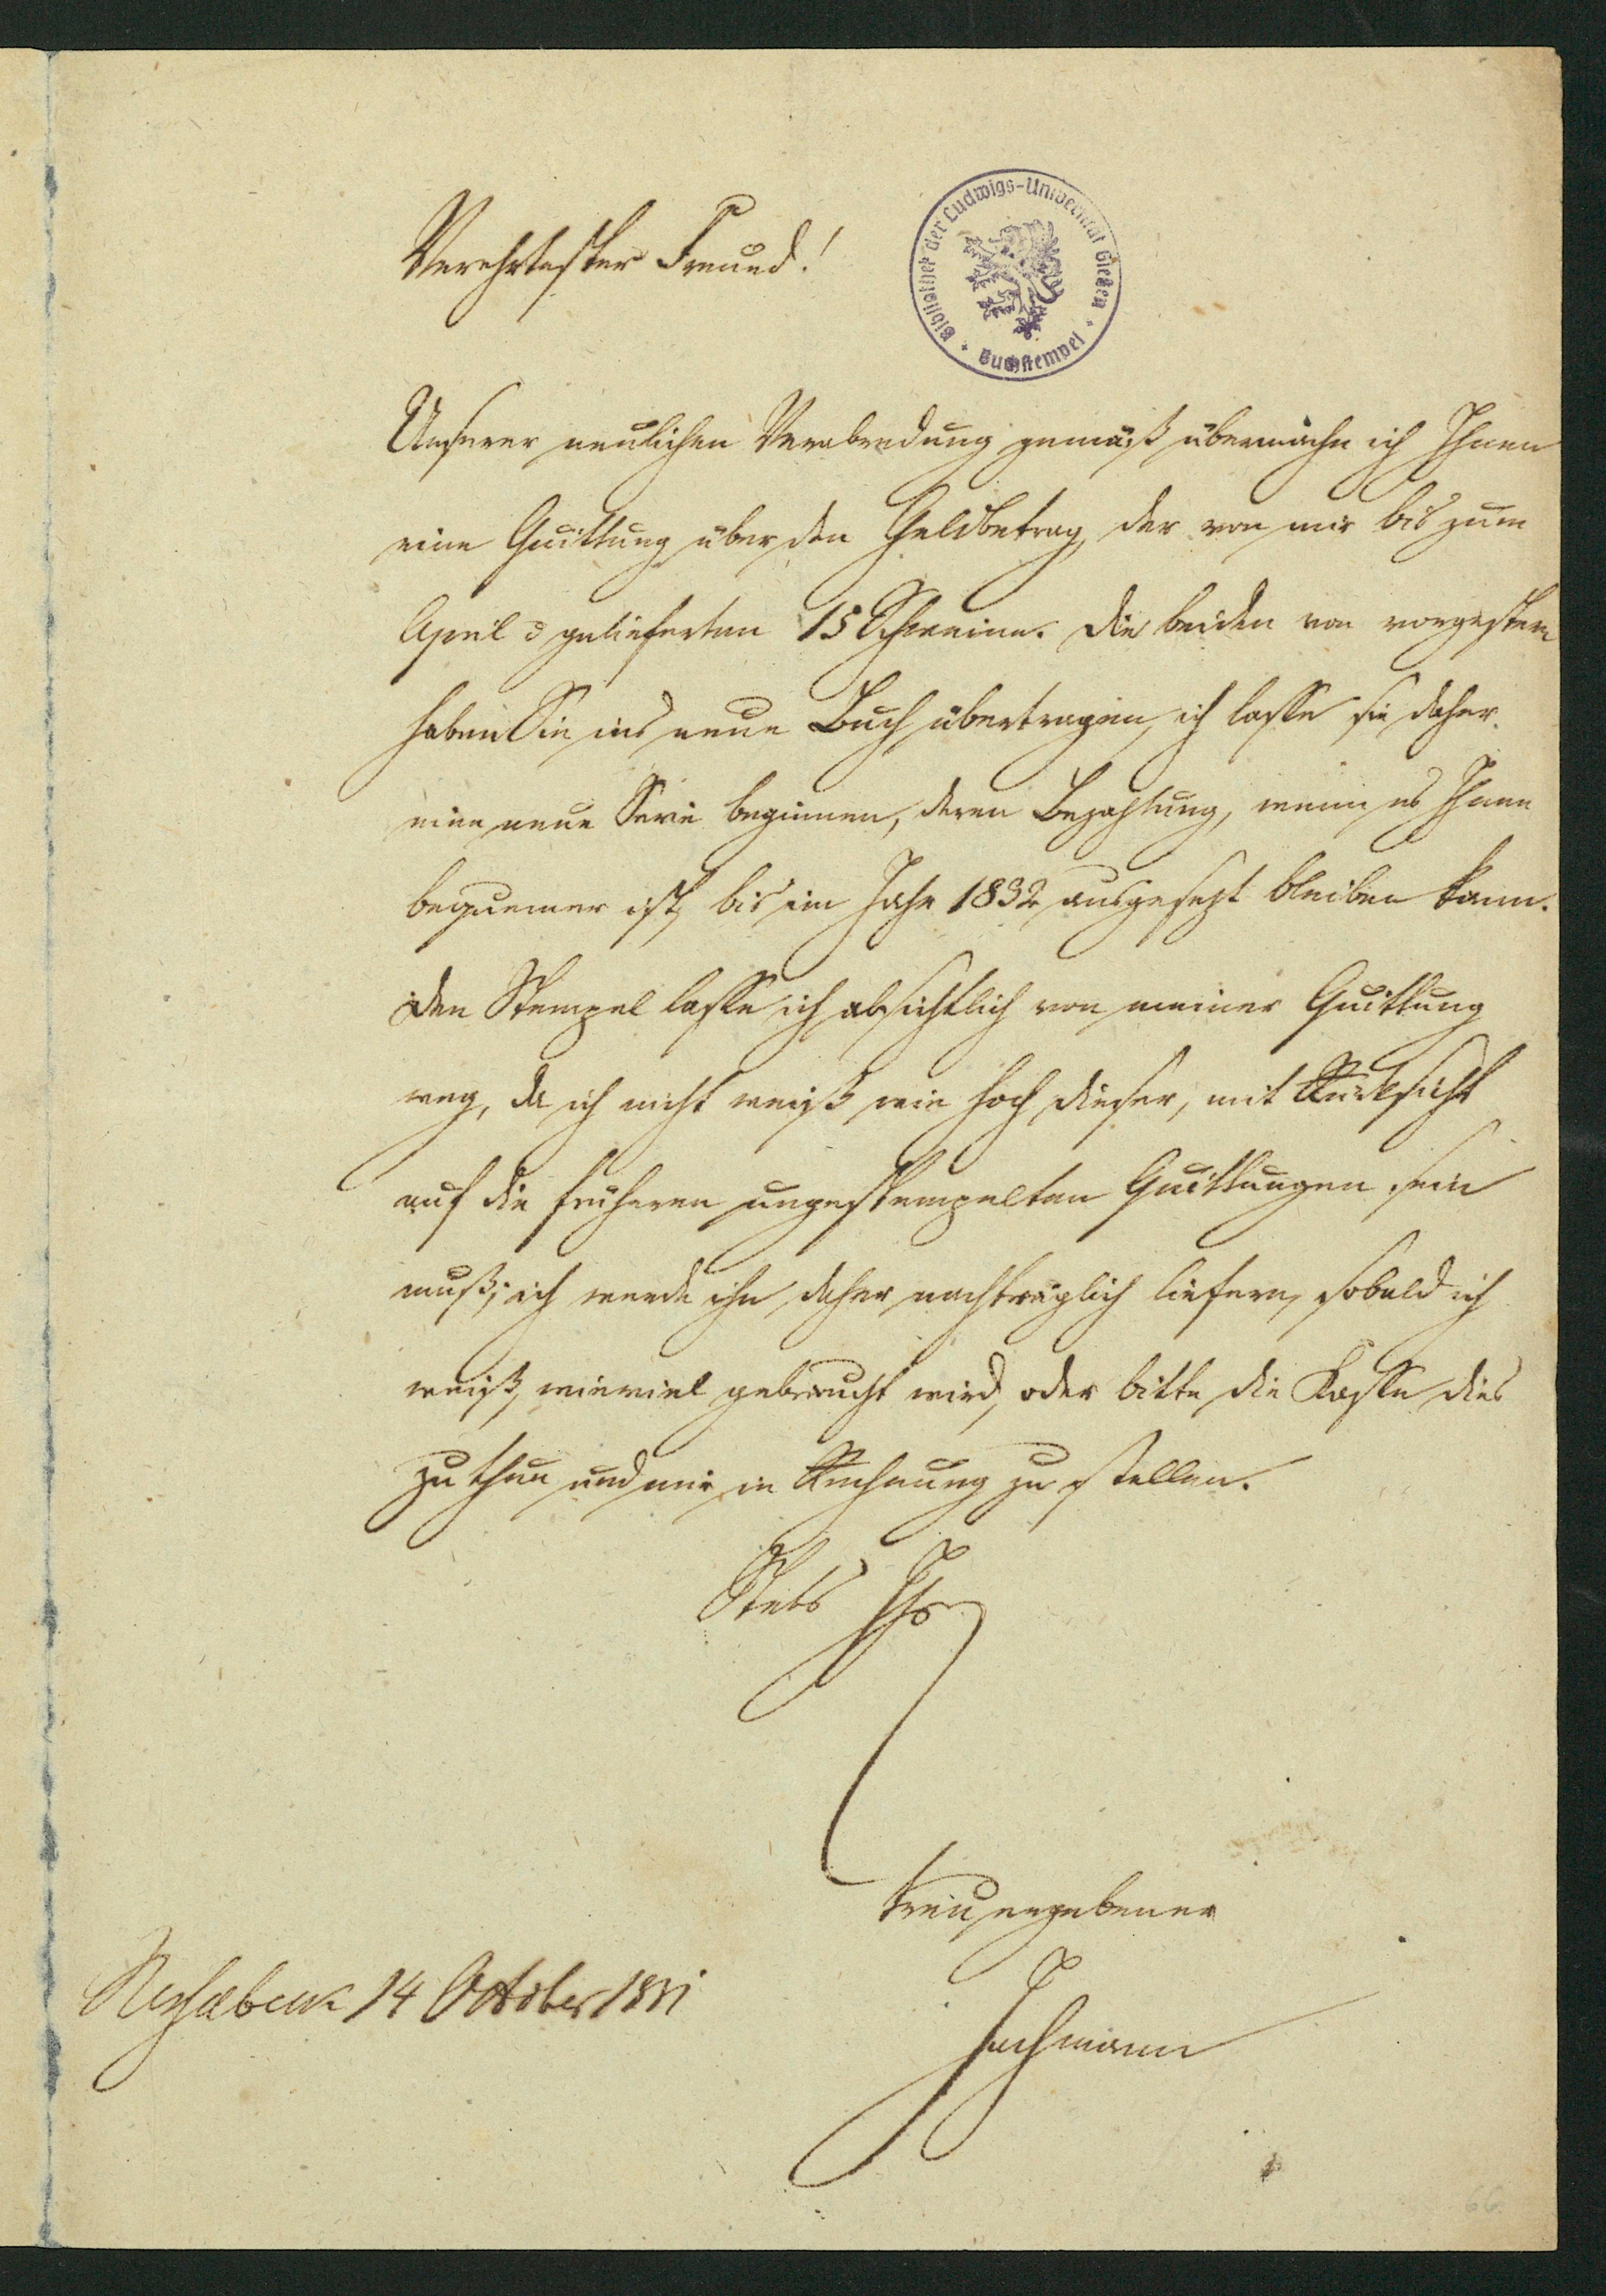 Verehrtester Freund!
Bibliothek der Ludwigs-Universität Gießen
Buchstempel
Unserer neulichen Verabredung gemäß übermache ich Ihnen
eine Quittung über den Geldbetrag, der von mir bis zum
April gelieferten 15 Schweine. Die beiden von vorgestern
haben Sie ins neue Buch übertragen, ich lasse sie daher
eine neue Serie beginnen, deren Bezahlung, wenn es Ihnen
bequemer ist, bis im Jahr 1832 ausgesezt bleiben kann.
Den Stempel lasse ich absichtlich von meiner Quittung
weg, da ich nicht weiß wie hoch dieser, mit Rücksicht
auf die früheren ungestempelten Quittungen sein
muß; ich werde ihn daher nachträglich liefern, sobald ich
weiß, wieviel gebraucht wird, oder bitte die Kasse dies
zu thun und mir in Rechnung zu stellen.
Stets Ihr
treu ergebener
Jachmann
14 October 1831
66